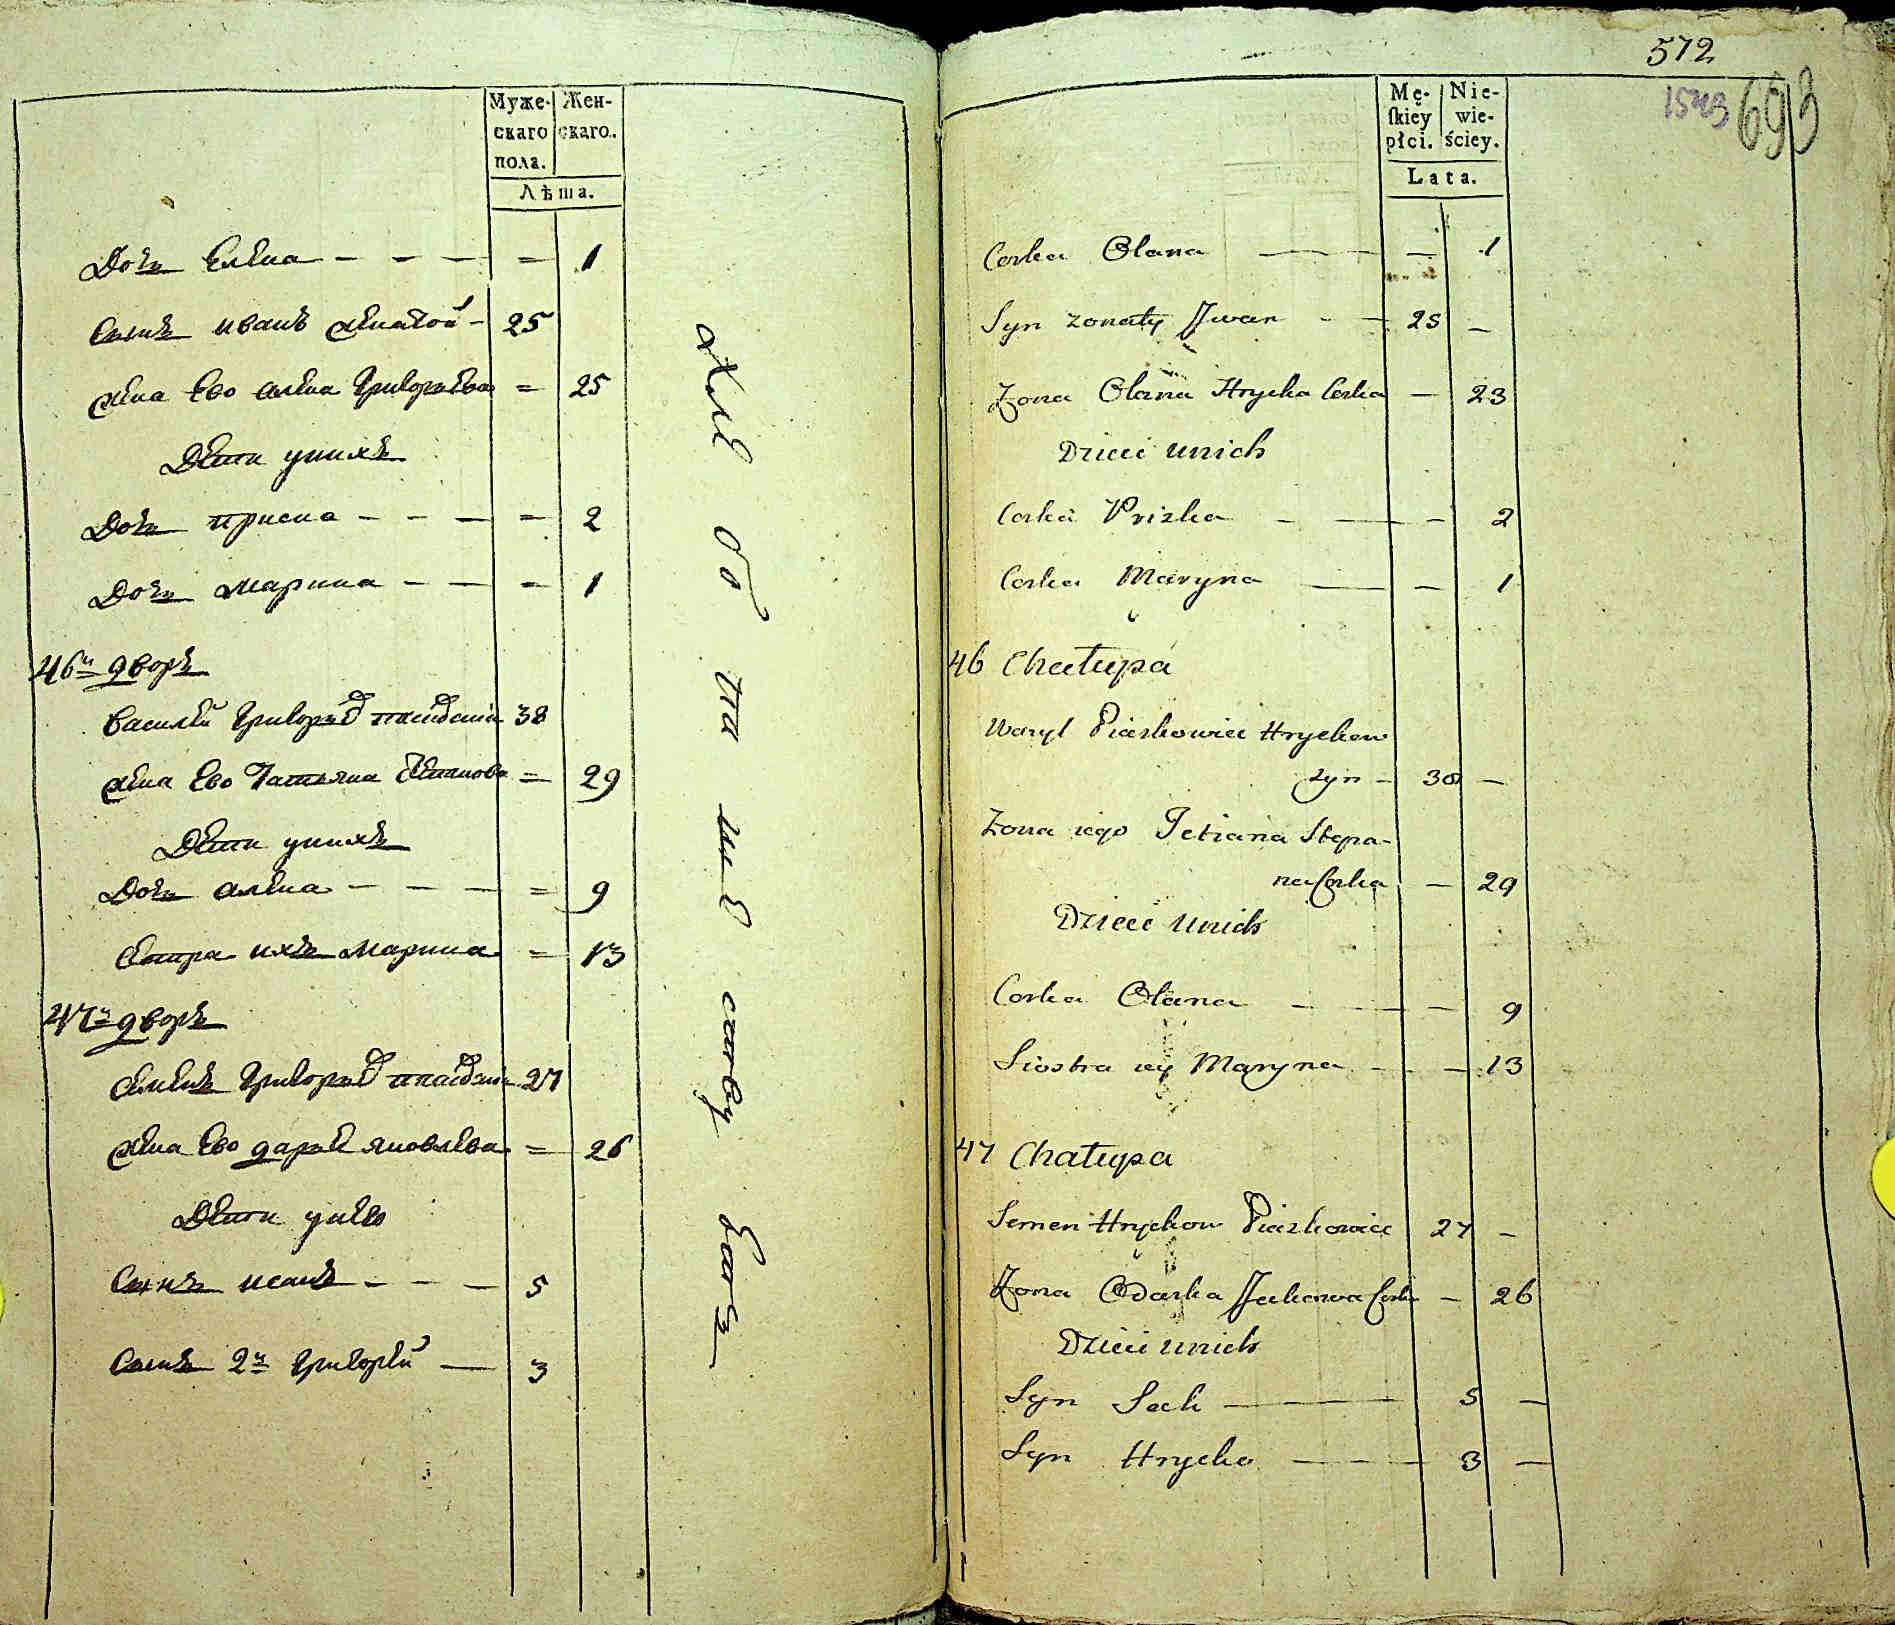 Муже-
скаго
пола.
Жен-
скаго.
Лѣта.
Дочь Елена - - - = 1
Сынъ иванъ женатой - 25
жена Ево алена григорьева = 25
Дети унихъ
Дочь приска - - - = 2
Дочь марина - - = 1
46й дворъ
василей григорьев 38
жена Ево Татьяна Степанова = 29
Дети унихъ
Дочь алена - - - = 9
Сестра ихъ марина = 13
47й дворъ
Семенъ григорьев 27
жена Ево дарья яковлева = 26
Дети унихъ
Сынъ исакъ - - - 5
Сынъ 2й григорей - 3
572
1543
693
Mę-
skiey
płci.
Nie-
wie-
ściey.
Lata.
Corka Olana — — 1
Syn zonaty Jwan - - 25 -
Zona Olana Hrycka Corka - 23
Dzieci unich
Corka Priska - — - 2
Corka Maryna — - 1
46 Chałupa
Wasyl Piaskowiec Hryckow
syn - 38 -
Zona iego Tetiana Stepa-
na Corka - 29
Dzieci unich
Corka Olana - — - 9
Siostra iey Maryna - - 13
47 Chałupa
Semen Hryckow Piaskowiec 27 -
Zona Odarka Jackowa Corka - 26
Dzieci unich
Syn Sack — 5 -
Syn Hrycko - — - 3 -